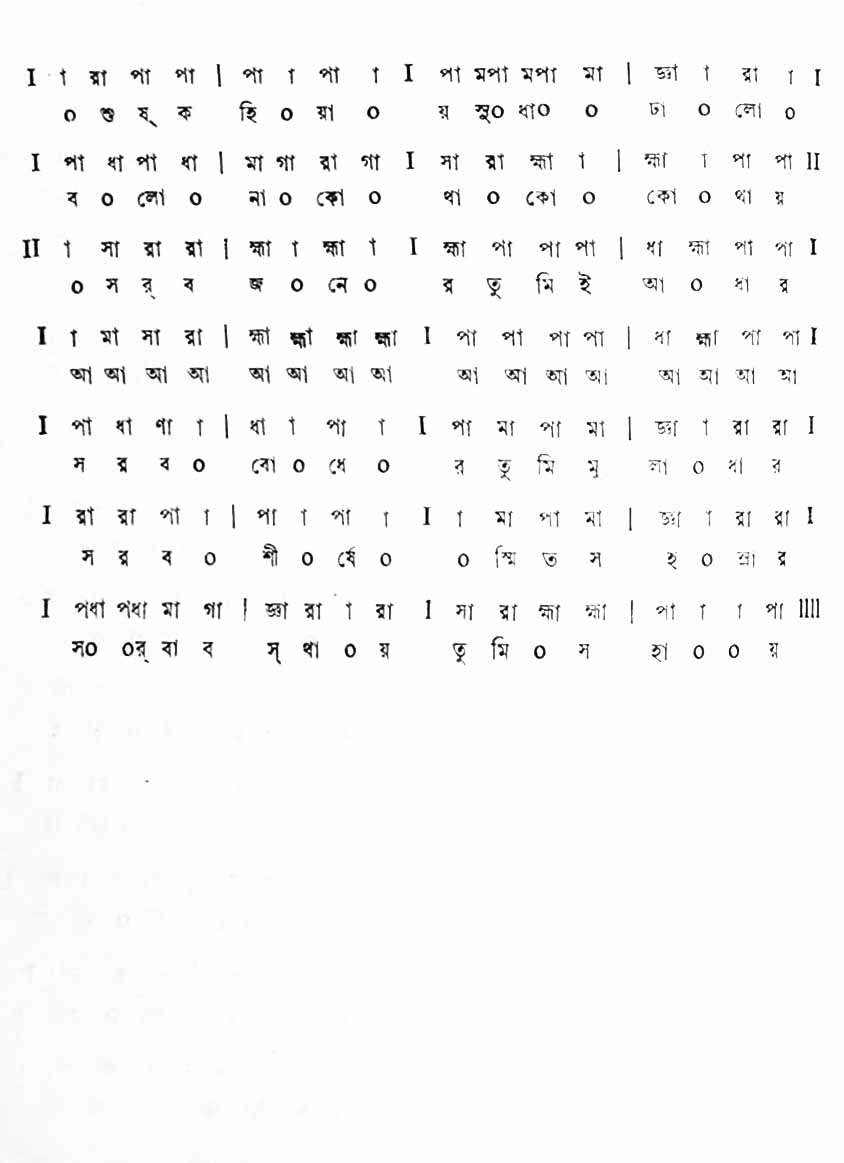 I া রা পা পা | পা া পা া I পা মপা মপা মা | জ্ঞা া রা া I
০ শু ষ্ ক হি ০ য়া ০ য় সু০ ধা০ ০ ঢা ০ লো ০
I পা ধা পা ধা | মা গা রা গা I সা রা হ্মা া | হ্মা া পা পা II
ব ০ লো ০ না ০ কো ০ থা ০ কো ০ কো ০ থা য়
II া সা রা রা | হ্মা া হ্মা া I হ্মা পা পা পা | ধা হ্মা পা পা I
০ স র্ ব জ ০ নে ০ র তু মি ই আ ০ ধা র
I া মা সা রা | হ্মা হ্মা হ্মা হ্মা I পা পা পা পা | ধা হ্মা পা পা I
আ আ আ আ আ আ আ আ আ আ আ আ আ আ আ আ
I পা ধা ণা া | ধা া পা া I পা মা পা মা | জ্ঞা া রা রা I
স র ব ০ বো ০ ধে ০ র তু মি মু লা ০ ধা র
I রা রা পা া | পা া পা া I া মা পা মা | জ্ঞা া রা রা I
স র ব ০ শী ০ র্ষে ০ ০ স্মি ত স হ ০ স্রা র
I পধা পধা মা গা | জ্ঞা রা া রা I সা রা হ্মা হ্মা | পা া া পা IIII
স০ ০র্ বা ব স্ থা ০ য় তু মি ০ স হা ০ ০ য়